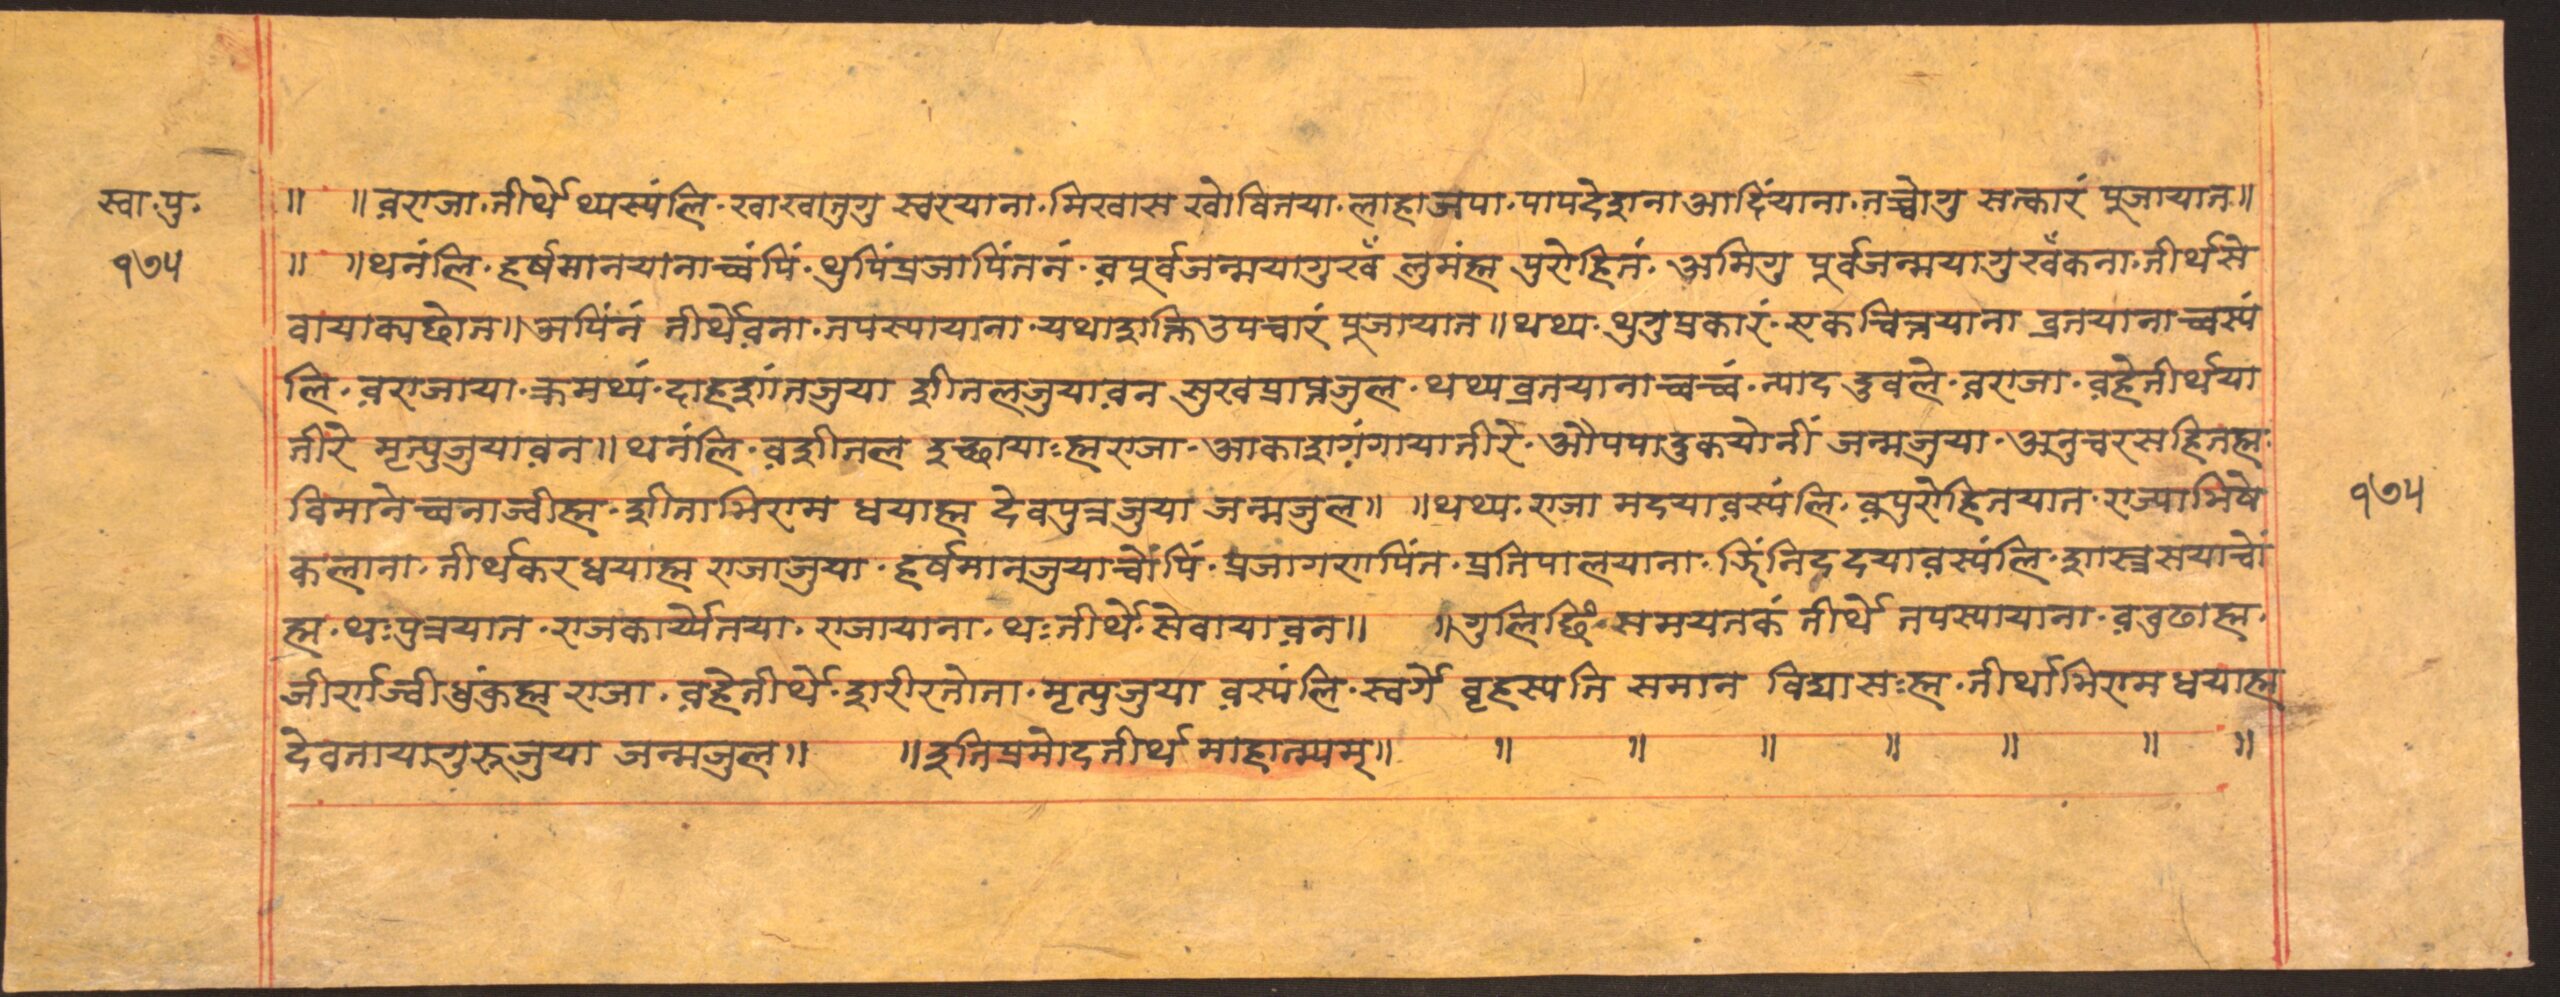 स्वा·पु·
१७५
॥ ॥व़राजा·तीर्थे थ्यस्यंलि·खाखातुगु स्वरयाना·मिखास खोवितया·लाहाज्वपा·पापदेशना आदिंयाना·तच्वोगु सत्कारं पूजायात॥
॥ ॥थनंलि·हर्षमानयानाच्वंपिं·थुपिंप्रजापिंतनं·व़पूर्वजन्मयागुखँ लुमंह्म पुरोहितं·अमिगु पूर्वजन्मयागुखँकना·तीर्थसे
वायाक्यछोत॥अपिंनं तीर्थेव़ना·तपस्यायाना·यथाशक्तिउपचारं पूजायात॥थथ्य·थुगुप्रकारं·एकचित्तयाना व्रतयानाच्वस्यं
लि·व़राजाया·क्रमथ्यं·दाहशांतजुया शीतलजुयाव़न सुखप्राप्तजुल·थथ्यव्रतयानाच्वच्वं·त्याद दुवले·व़राजा·व़हेतीर्थया
तीरे मृत्युजुयाव़न॥थनंलि·व़शीतल इच्छायाःह्मराजा·आकाशगंगायातीरे·औपपादुकयोनीं जन्मजुया·अनुचरसहितह्म·
विमानेच्वनाज्वीह्म·शीताभिराम धयाह्म देवपुत्रजुया जन्मजुल॥ ॥थथ्य·राजा मदयाव़स्यंलि·व़पुरोहितयात·राज्याभिषे
कलाना·तीर्थकरधयाह्म राजाजुया·हर्षमान्जुयाच्वोंपिं·प्रजागरापिंत·प्रतिपालयाना·ञिंनिददयाव़स्यंलि·शास्त्रसयाच्वों
ह्म·थःपुत्रयात·राजकार्य्येतया·राजायाना·थःतीर्थे·सेवायाव़न॥ ॥गुलिछिं·समयतकं तीर्थे तपस्यायाना·व़वुढाह्म·
जीर्राज्वीधुंकुह्म राजा·व़हेतीर्थे·शरीरतोता·मृत्युजुया व़स्यंलि·स्वर्गे वृहस्पति समान विद्यासःह्म·तीर्थाभिरामधयाह्म
देवतायागुरूजुया जन्मजुल॥ ॥इतिप्रमोदतीर्थ माहात्म्यम्॥ ॥ ॥ ॥ ॥ ॥ ॥ ॥
१७५